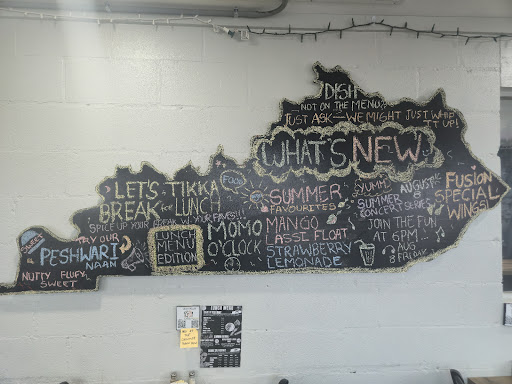 DISH
NOT ON THE MENU?
JUST ASK—WE MIGHT JUST WHIP
IT UP!
WHAT'S NEW
LET'S TIKKA
BREAK for LUNCH
SPICE UP YOUR BREAK W/ YOUR FAVES!!!
LUNCH
MENU
EDITION
FOOD
MOMO
O'CLOCK
SWEET
TRY OUR
PESHWARI
NAAN
NUTTY, FLUFY,
SWEET
SUMMER
FAVOURITES
MANGO
LASSI FLOAT
STRAWBERAY
LEMONADE
YUMM
AUGUST 8
SUMMER
CONCERT SERIES
JOIN THE FUN
AT 6PM...
AUG
8
FRIDAY
FUSION
SPECIAL
WINGS!
LUNCH MENU